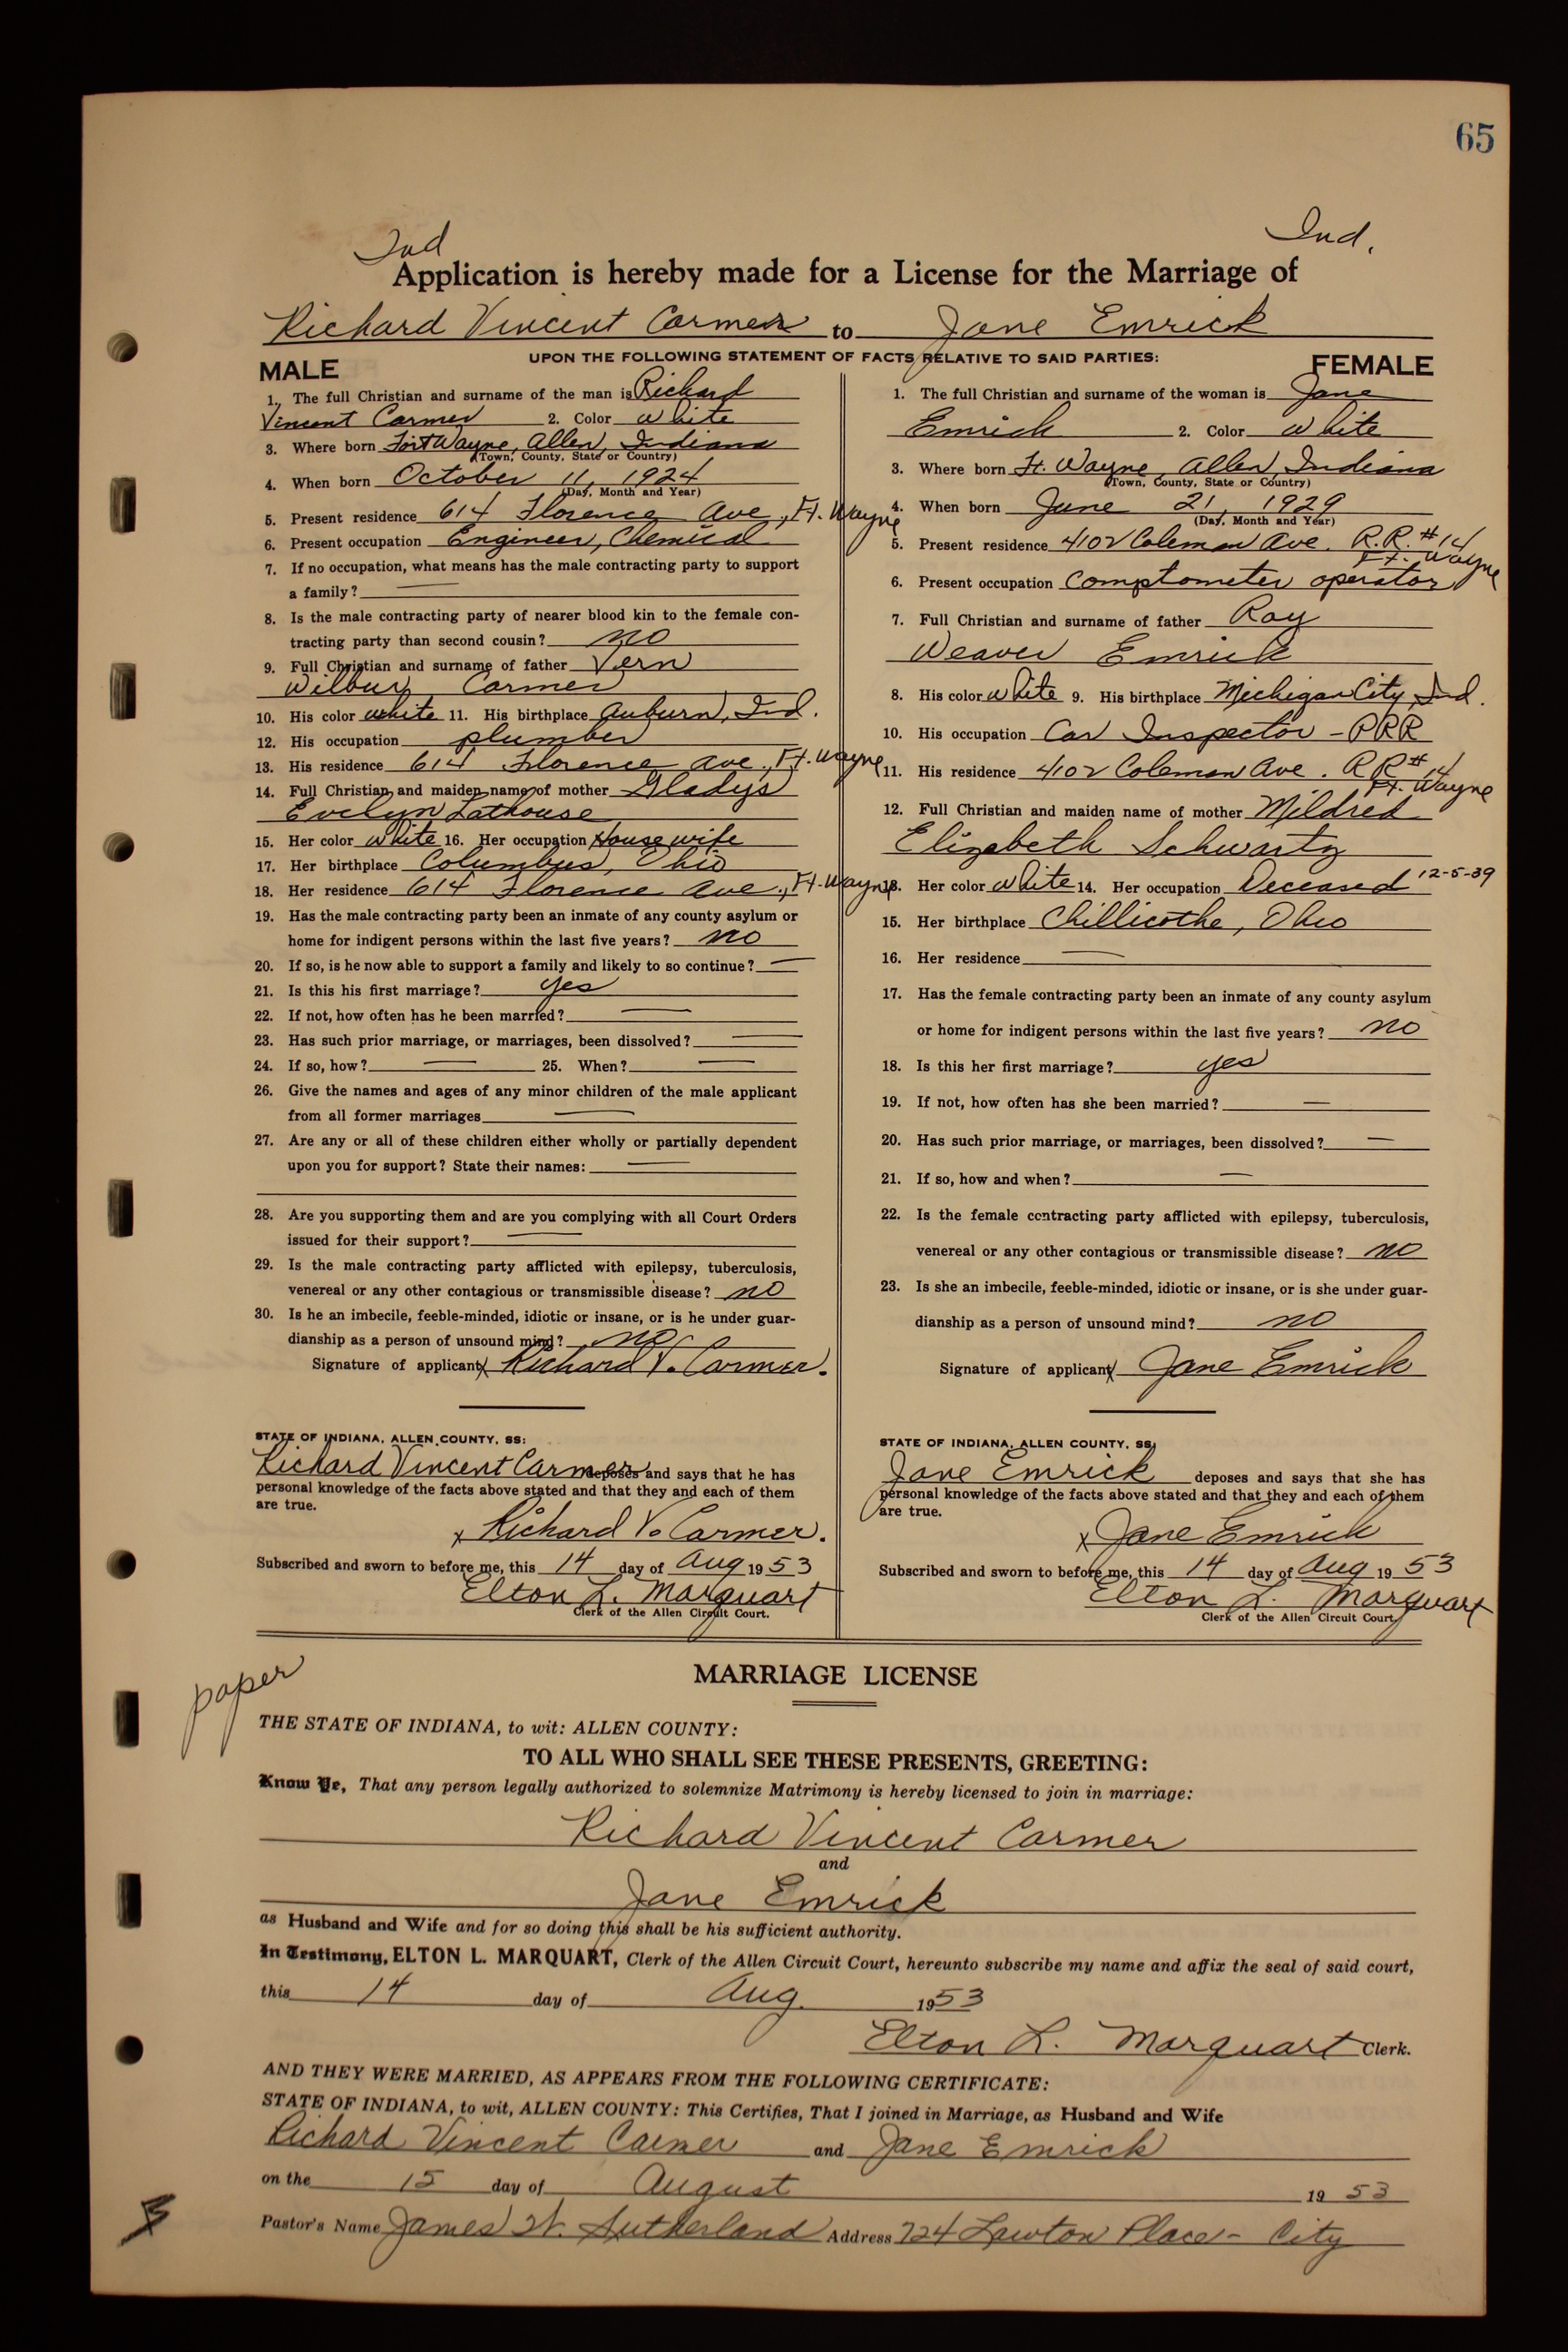 65
Ind
Ind.
Application is hereby made for a License for the Marriage of
Richard Vincent Carmer to Jane Emrick
UPON THE FOLLOWING STATEMENT OF FACTS RELATIVE TO SAID PARTIES:
MALE
1. The full Christian and surname of the man is Richard
Vincent Carmer 2. Color White
3. Where born Fort Wayne, Allen, Indiana
(Town, County, State or Country)
4. When born October 11, 1924
(Day, Month and Year)
5. Present residence 614 Florence Ave., Ft. Wayne
6. Present occupation Engineer, Chemical
7. If no occupation, what means has the male contracting party to support
a family? —
8. Is the male contracting party of nearer blood kin to the female con-
tracting party than second cousin? no
9. Full Christian and surname of father Vern
Wilbur Carmer
10. His color white 11. His birthplace Auburn, Ind.
12. His occupation plumber
13. His residence 614 Florence Ave., Ft. Wayne
14. Full Christian and maiden name of mother Gladys
Evelyn Lathouse
15. Her color White 16. Her occupation Housewife
17. Her birthplace Columbus, Ohio
18. Her residence 614 Florence Ave., Ft. Wayne
19. Has the male contracting party been an inmate of any county asylum or
home for indigent persons within the last five years? no
20. If so, is he now able to support a family and likely to so continue? —
21. Is this his first marriage? yes
22. If not, how often has he been married? —
23. Has such prior marriage, or marriages, been dissolved? —
24. If so, how? — 25. When? —
26. Give the names and ages of any minor children of the male applicant
from all former marriages —
27. Are any or all of these children either wholly or partially dependent
upon you for support? State their names: —
28. Are you supporting them and are you complying with all Court Orders
issued for their support? —
29. Is the male contracting party afflicted with epilepsy, tuberculosis,
venereal or any other contagious or transmissible disease? no
30. Is he an imbecile, feeble-minded, idiotic or insane, or is he under guar-
dianship as a person of unsound mind? no
Signature of applicant x Richard V. Carmer.
STATE OF INDIANA, ALLEN COUNTY, SS:
Richard Vincent Carmer deposes and says that he has
personal knowledge of the facts above stated and that they and each of them
are true.
x Richard V. Carmer.
Subscribed and sworn to before me, this 14 day of Aug 1953
Elton L. Marquart
Clerk of the Allen Circuit Court.
FEMALE
1. The full Christian and surname of the woman is Jane
Emrick 2. Color White
3. Where born Ft. Wayne, Allen, Indiana
(Town, County, State or Country)
4. When born June 21, 1929
(Day, Month and Year)
5. Present residence 4102 Coleman Ave. R.R. #14
Ft. Wayne
6. Present occupation Comptometer operator
7. Full Christian and surname of father Ray
Weaver Emrick
8. His color white 9. His birthplace Michigan City, Ind.
10. His occupation Car Inspector - PRR
11. His residence 4102 Coleman Ave. RR #14
Ft. Wayne
12. Full Christian and maiden name of mother Mildred
Elizabeth Schwartz
13. Her color White 14. Her occupation Deceased 12-5-39
15. Her birthplace Chillicothe, Ohio
16. Her residence —
17. Has the female contracting party been an inmate of any county asylum
or home for indigent persons within the last five years? no
18. Is this her first marriage? yes
19. If not, how often has she been married? —
20. Has such prior marriage, or marriages, been dissolved? —
21. If so, how and when? —
22. Is the female contracting party afflicted with epilepsy, tuberculosis,
venereal or any other contagious or transmissible disease? no
23. Is she an imbecile, feeble-minded, idiotic or insane, or is she under guar-
dianship as a person of unsound mind? no
Signature of applicant x Jane Emrick
STATE OF INDIANA, ALLEN COUNTY, SS
Jane Emrick deposes and says that she has
personal knowledge of the facts above stated and that they and each of them
are true.
x Jane Emrick
Subscribed and sworn to before me, this 14 day of Aug 1953
Elton L. Marquart
Clerk of the Allen Circuit Court.
paper
MARRIAGE LICENSE
THE STATE OF INDIANA, to wit: ALLEN COUNTY:
TO ALL WHO SHALL SEE THESE PRESENTS, GREETING:
Know Ye, That any person legally authorized to solemnize Matrimony is hereby licensed to join in marriage:
Richard Vincent Carmer
and
Jane Emrick
as Husband and Wife and for so doing this shall be his sufficient authority.
In Testimony, ELTON L. MARQUART, Clerk of the Allen Circuit Court, hereunto subscribe my name and affix the seal of said court,
this 14 day of Aug. 1953
Elton L. Marquart Clerk.
AND THEY WERE MARRIED, AS APPEARS FROM THE FOLLOWING CERTIFICATE:
STATE OF INDIANA, to wit, ALLEN COUNTY: This Certifies, That I joined in Marriage, as Husband and Wife
Richard Vincent Carmer and Jane Emrick
on the 15 day of August 1953
Pastor's Name James W. Sutherland Address 724 Lawton Place - City